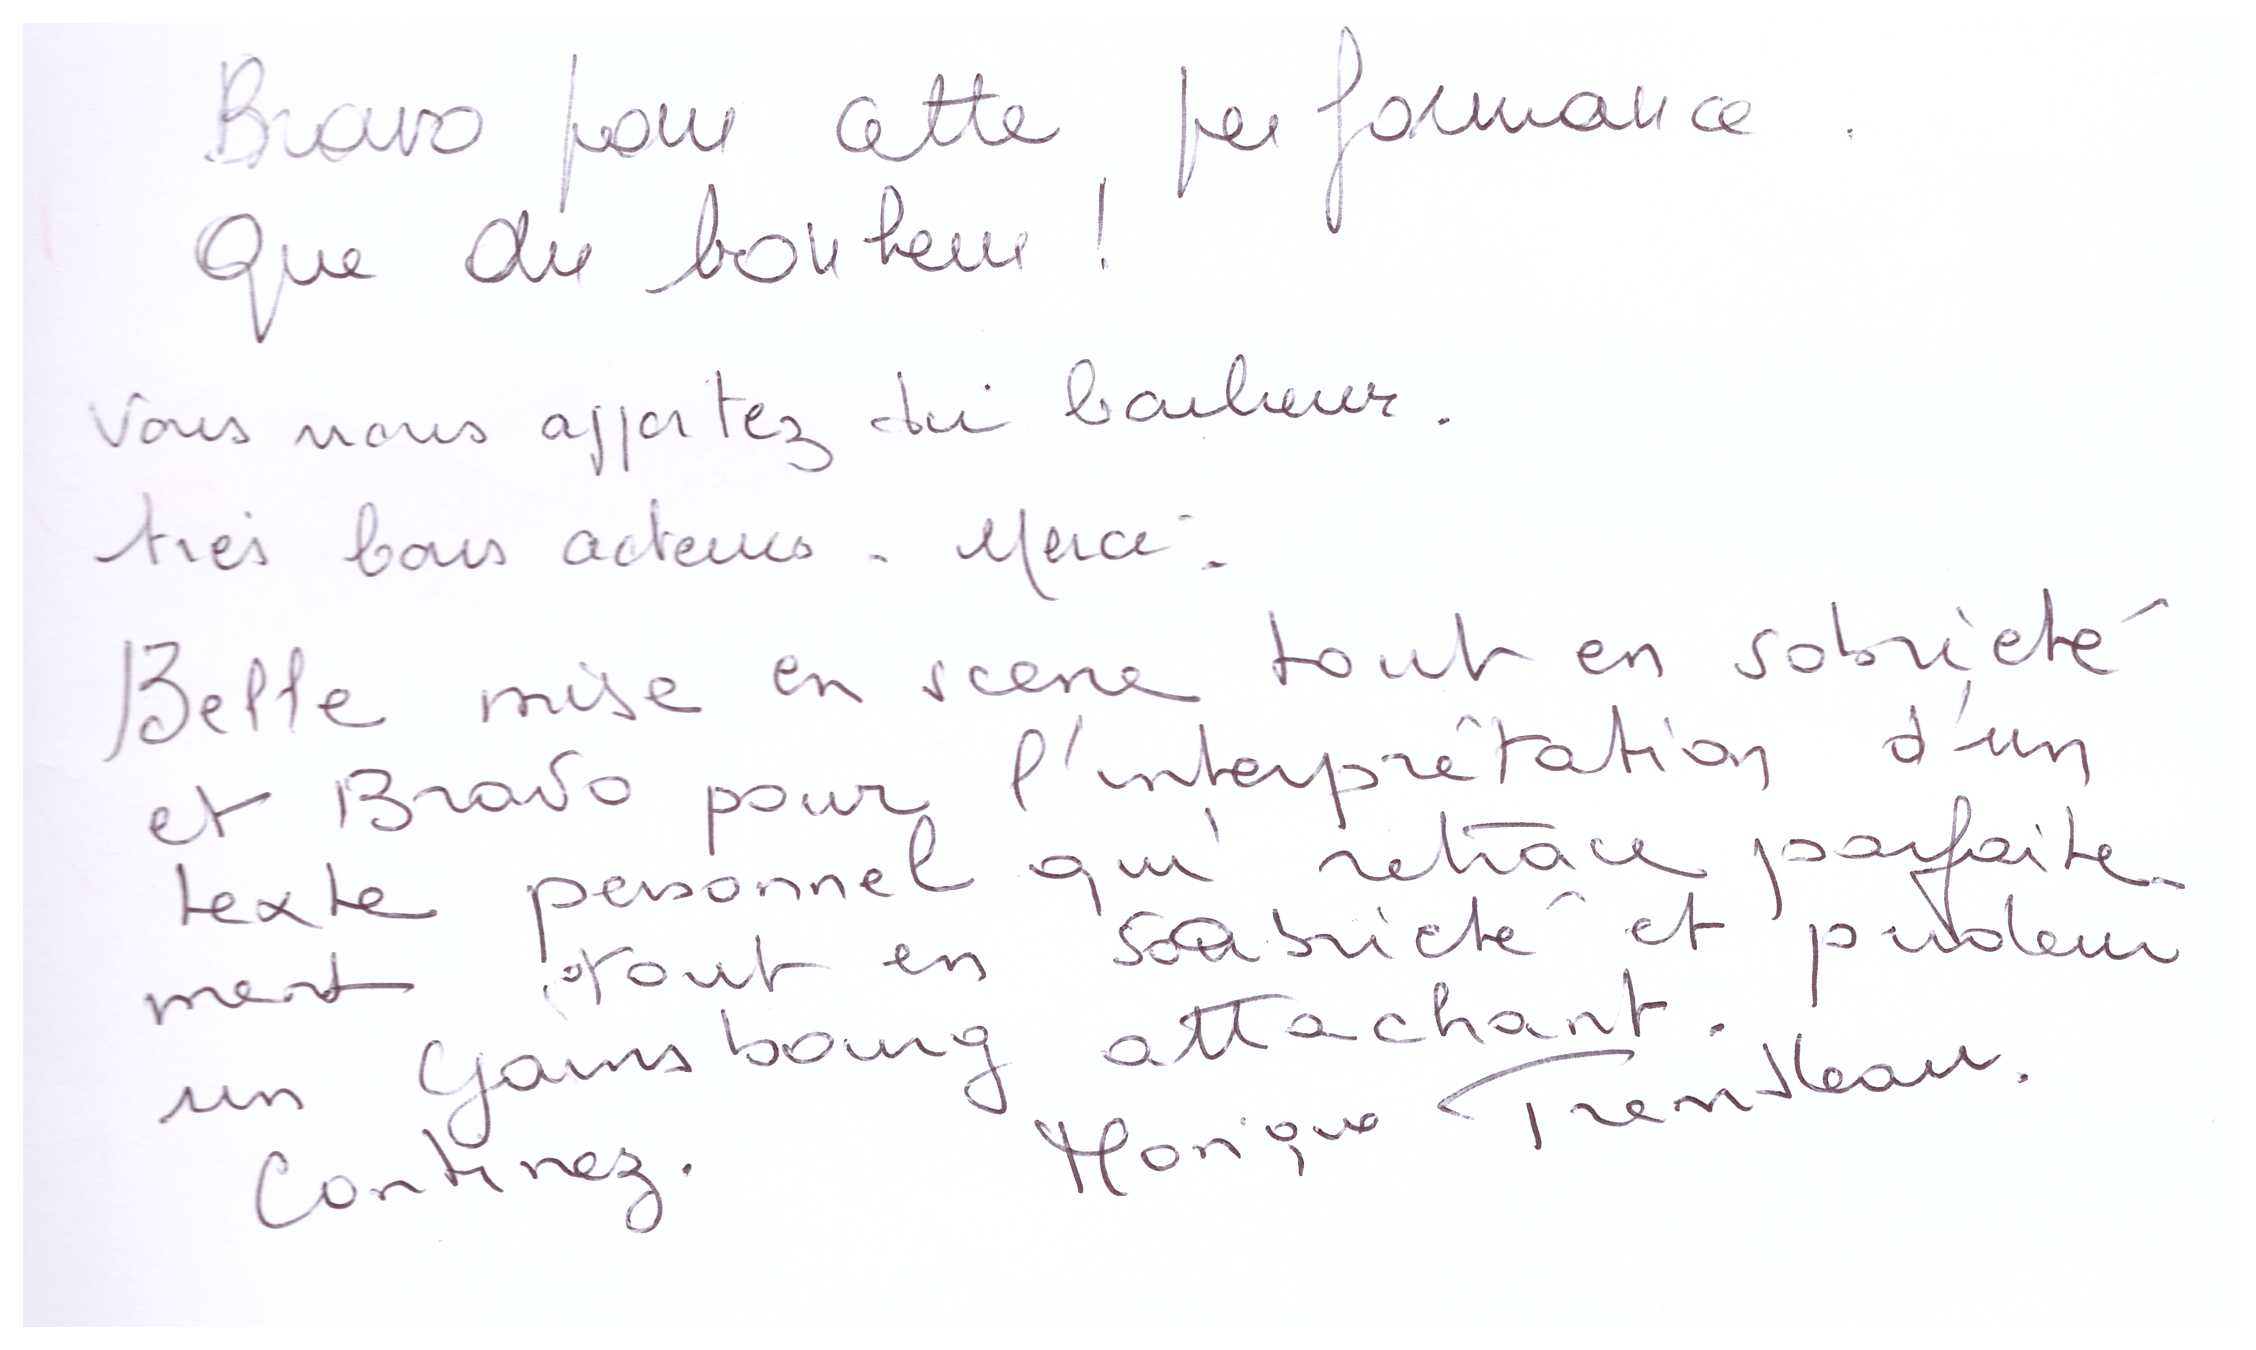 Bravo pour cette performance.
Que du bonheur !
Vous nous apportez du bonheur.
très bons acteurs. Merci.
Belle mise en scene tout en sobriété
et Bravo pour l'interprêtation d'un
texte personnel qui retrace parfaite-
ment tout en sobrieté et pudeur
un Gainsbourg attachant.
Continez. Monique